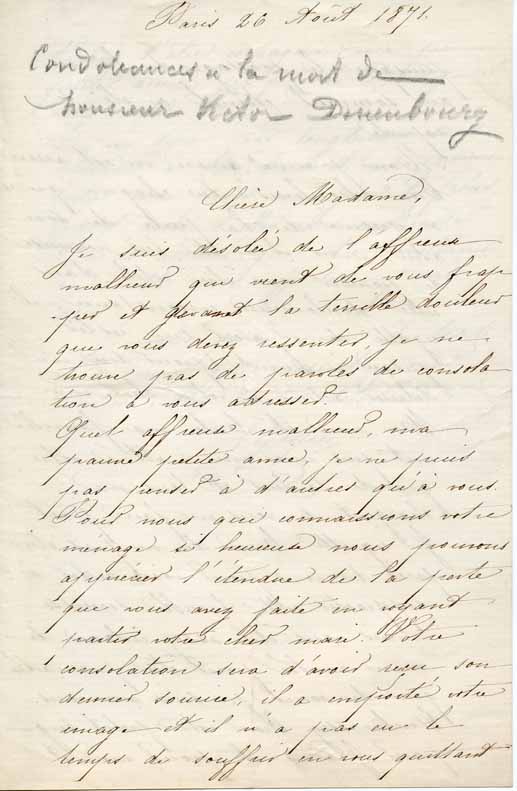 Paris 26 Août 1871.
Condoléances à la mort de
Monsieur Victor Dunenbourg
Chère Madame,
Je suis désolée de l'affreux
malheur qui vient de vous frap-
per et devant la terrible douleur
que vous devez ressentir, je ne
trouve pas de paroles de consola-
tion à vous adresser.
Quel affreuse malheur, ma
pauvre petite amie, je ne puis
pas penser à d'autres qu'à vous.
Pour nous que connaissions votre
ménage si heureuse nous pouvons
apprécier l'étendue de la perte
que vous avez faite en voyant
partir votre cher mari. Votre
consolation sera d'avoir reçu son
dernier sourire, il a emporté votre
image et il n'a pas eu le
temps de souffrir en vous quittant